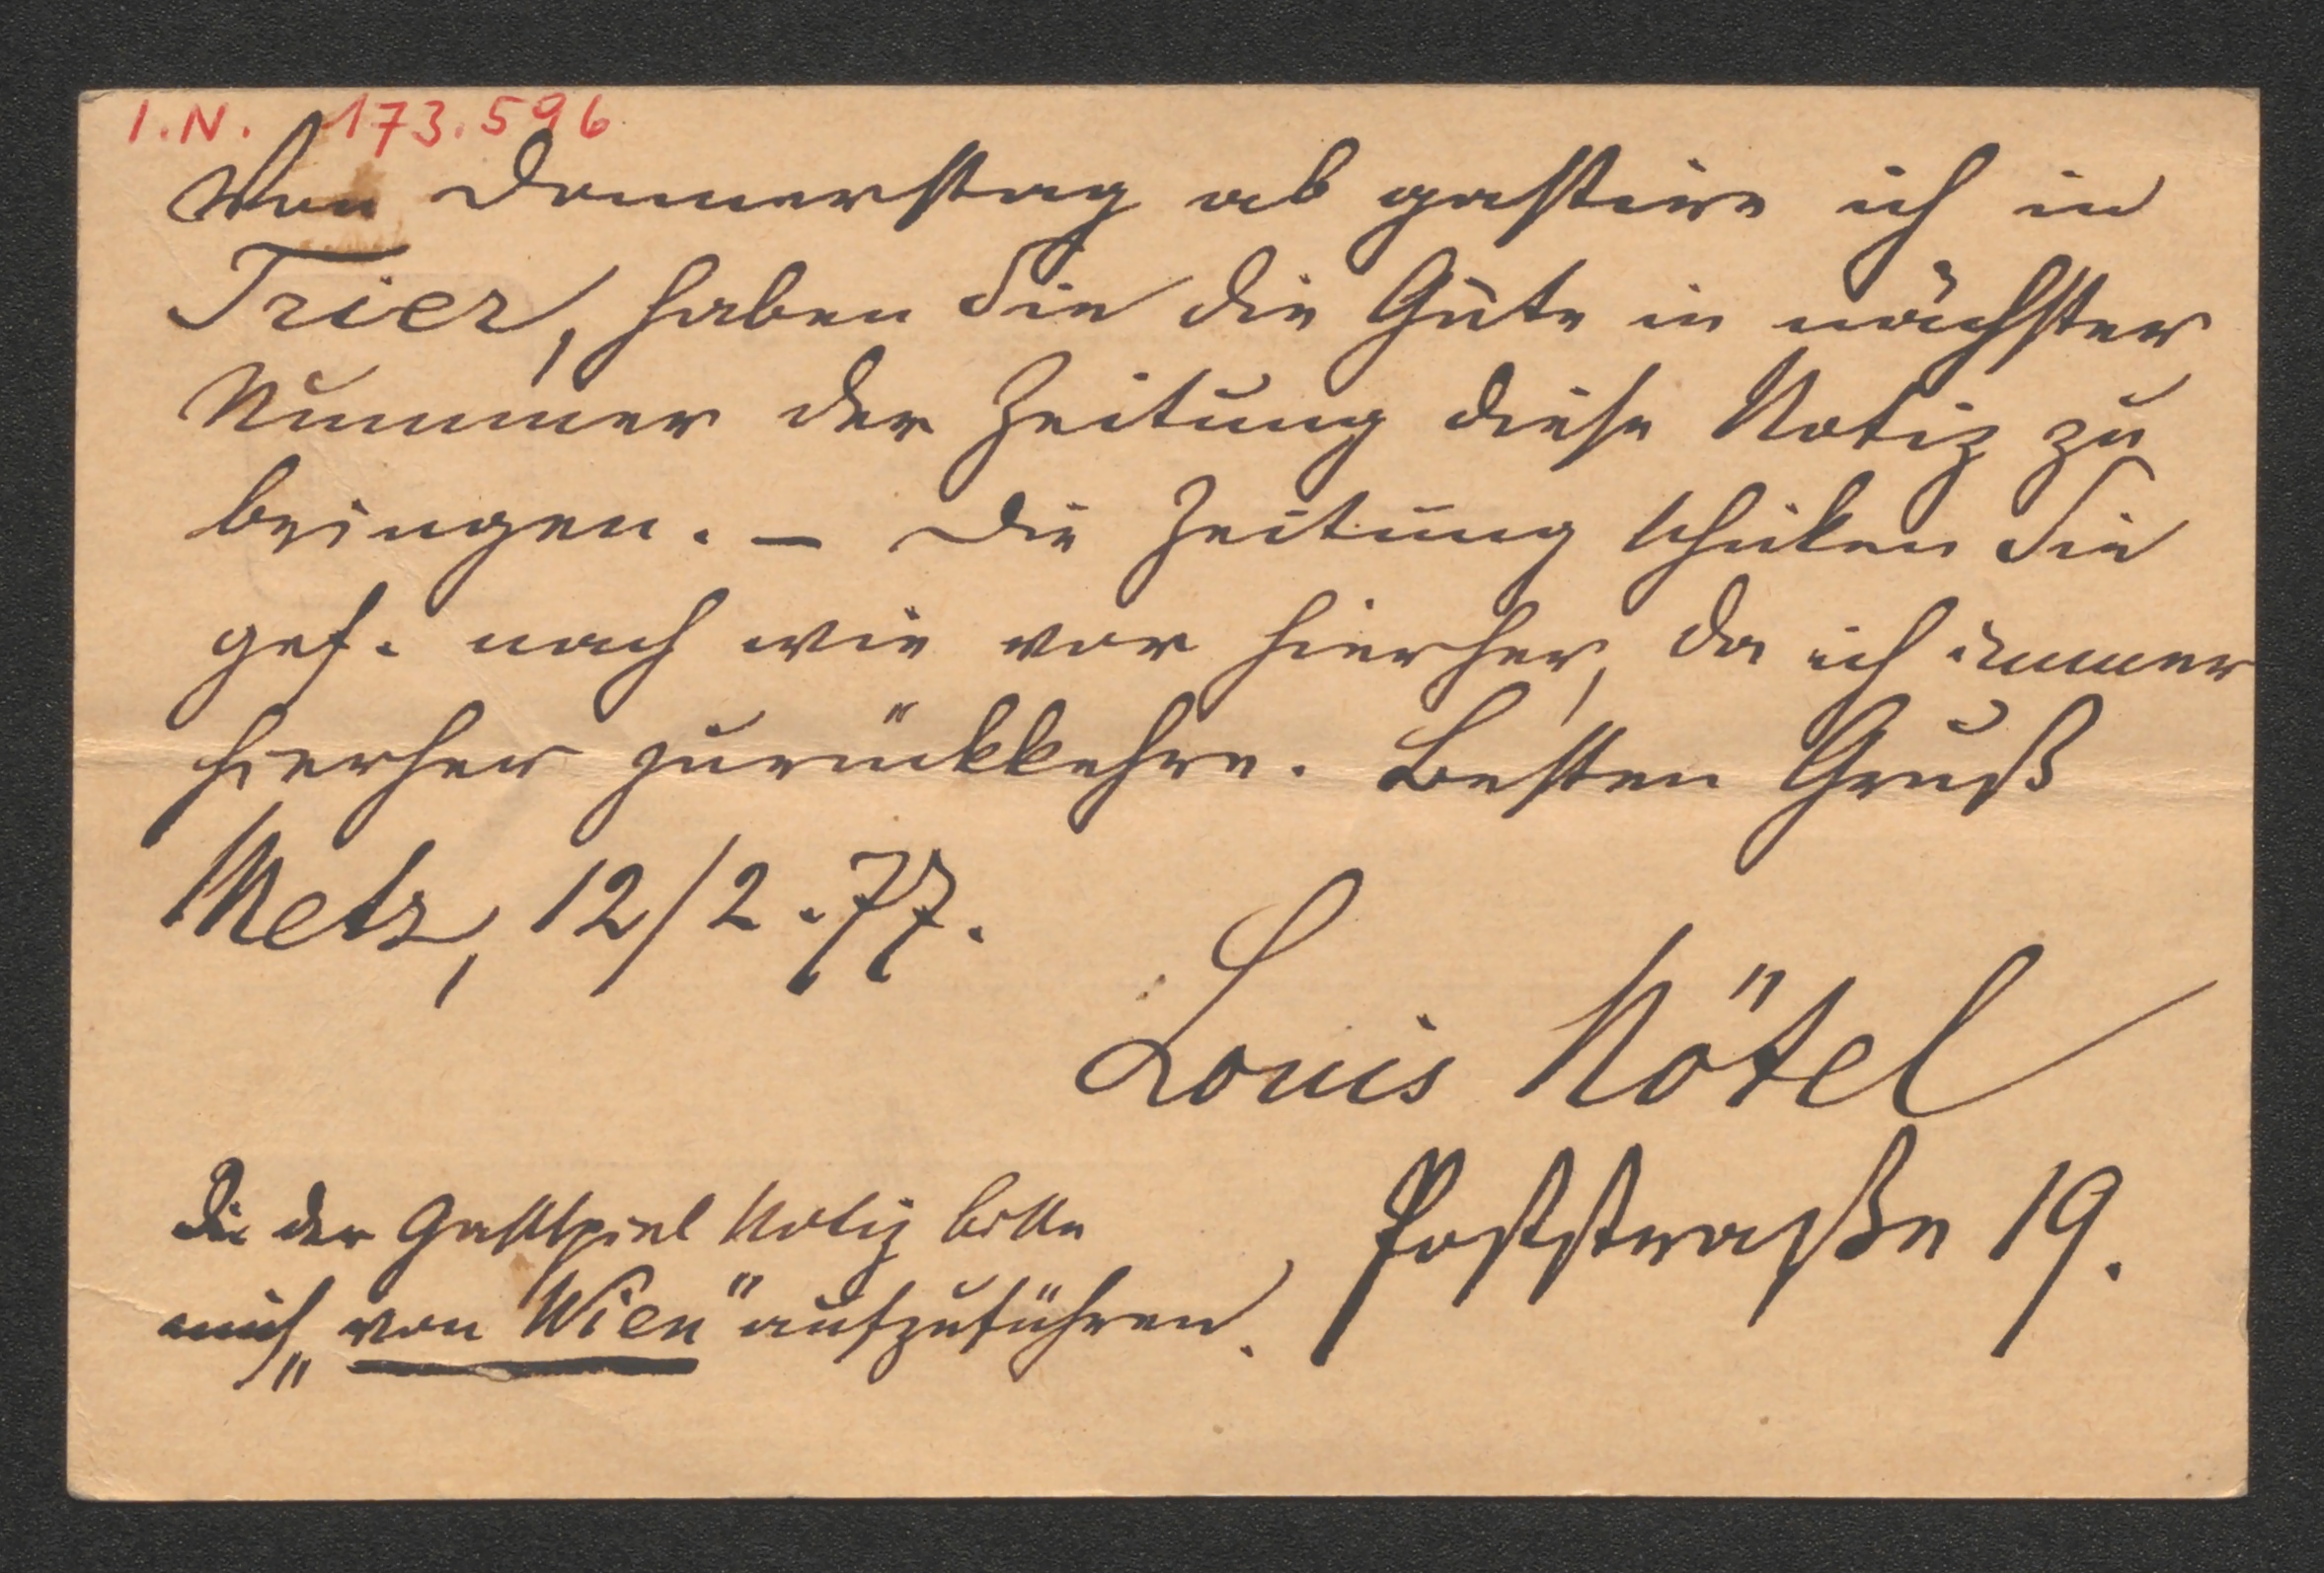 I.N. 173.596
Von Donnerstag ab gastire ich in
Trier, haben Sie die Güte in nächster
Nummer der Zeitung diese Notiz zu
bringen. — Die Zeitung schicken Sie
gef. nach wie vor hierher, da ich immer
hierher zurückkehre. Besten Gruß
Metz, 12/2.77.
Louis Nötel
Poststraße 19.
der Gastspiel Notiz bitte
mich „von Wien" aufzuführen.